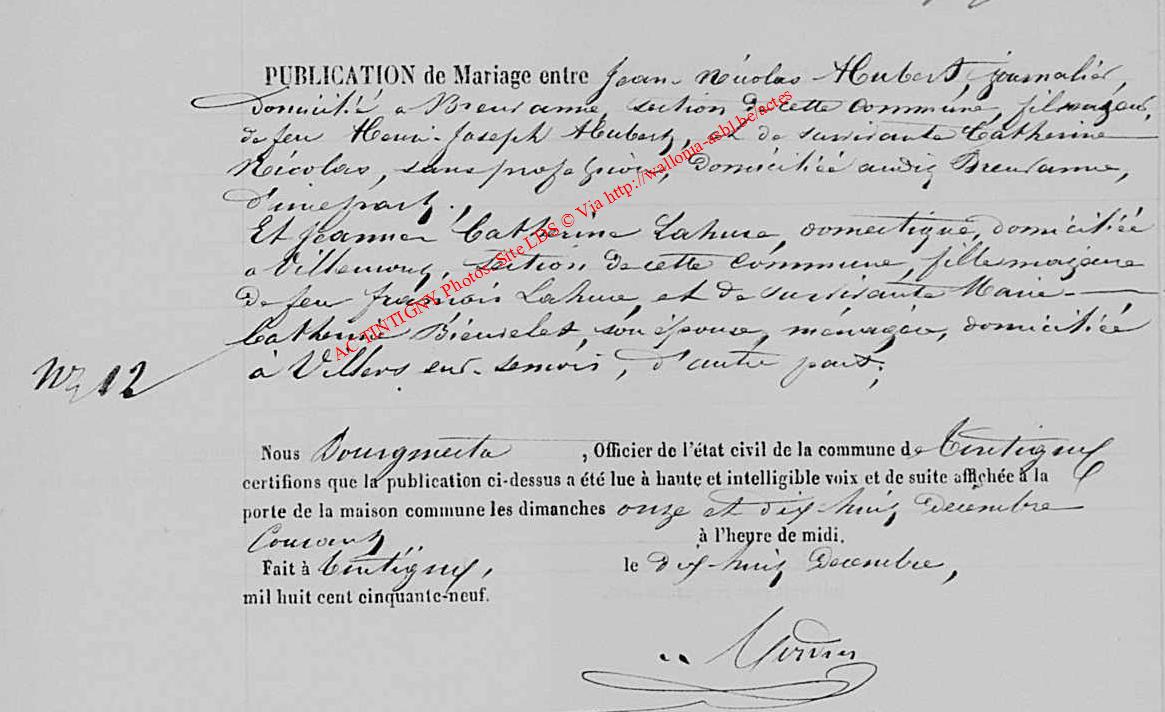 PUBLICATION de Mariage entre Jean-Nicolas Hubert, journalier,
domicilié a Breuvanne, section de cette commune, fils majeur
de feu Henri-Joseph Hubert, et de survivante Catherine
Nicolas, sans profession, domiciliée audit Breuvanne,
d'une part;
Et Jeanne Catherine Lahure, domestique, domiciliée
a Villemont, section de cette commune, fille majeure
de feu françois Lahure, et de survivante Marie-
Catherine, son épouse, ménagère, domiciliée
à Villers sur-semois, d'autre part;
N° 12
Nous Bourgmestre, Officier de l'état civil de la commune de Tintigny
certifions que la publication ci-dessus a été lue à haute et intelligible voix et de suite affichée à la
porte de la maison commune les dimanches onze et dix-huit Décembre
Courant à l'heure de midi.
Fait à Tintigny, le dix-huit Decembre,
mil huit cent cinquante-neuf.
AC TINTIGNY Photos Site LDS © Via http://wallonia-asbl.be/actes